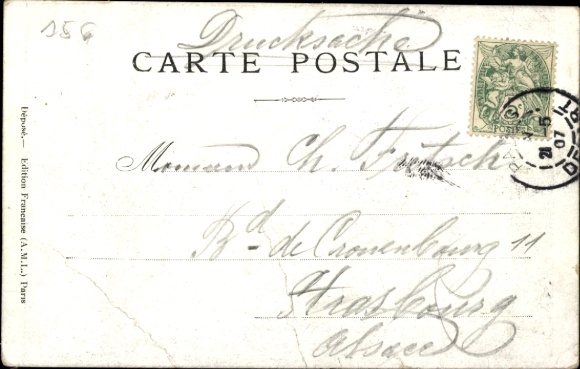 156
Drucksache
CARTE POSTALE
POSTES
PARIS
21 -5
07
DEPART
Monsieur Ch. Fritsch
Bd de Cronenbourg 11
Strasbourg
Alsace
Déposé.— Edition Française (A.M.L.) Paris